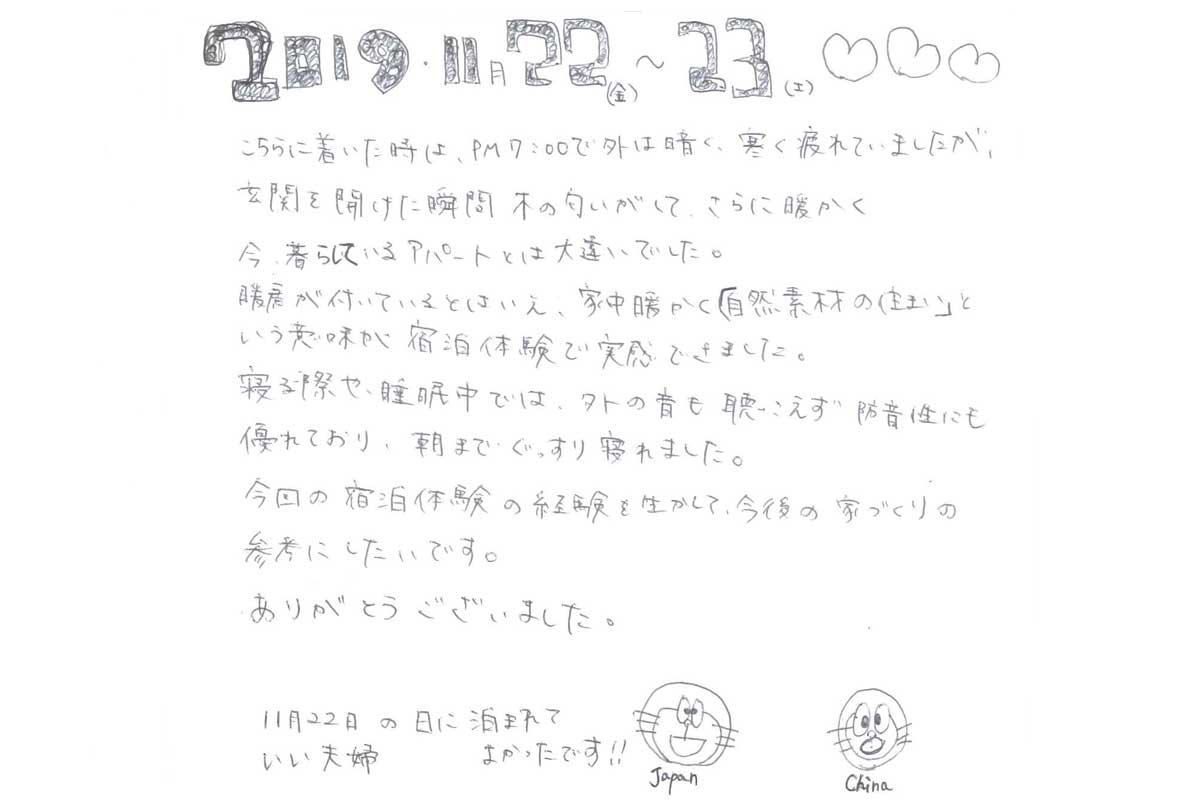 2019.11月22(金)～23(土)
こちらに着いた時は、PM7:00で外は暗く、寒く疲れていましたが、
玄関を開けた瞬間 木の匂いがして、さらに暖かく
今、暮らしているアパートとは大違いでした。
暖房が付いているとはいえ、家中暖かく「自然素材の住まい」と
いう意味が 宿泊体験で実感できました。
寝る際や、睡眠中では、外の音も 聴こえず 防音性にも
優れており、朝までぐっすり寝れました。
今回の 宿泊体験の経験を生かして、今後の 家づくりの
参考にしたいです。
ありがとうございました。
11月22日 の 日に 泊まれて
いい夫婦 よかったです!!
Japan
China